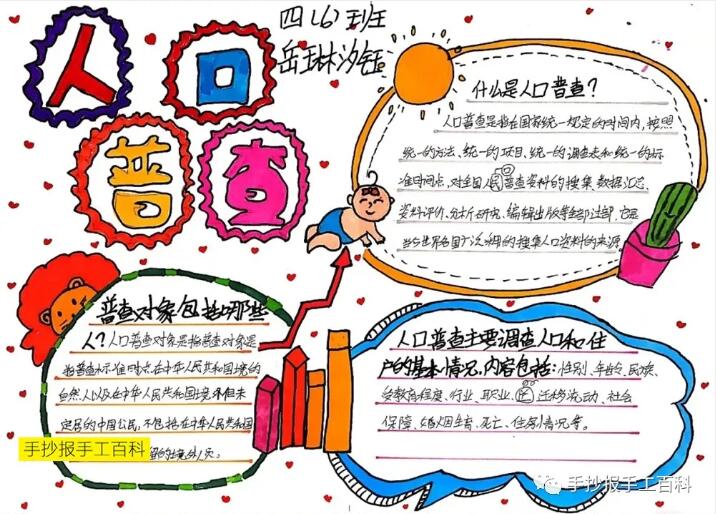 四(6)班
岳琳汐钰
人口
普查
什么是人口普查？
人口普查是指在国家统一规定的时间内,按照
统一的方法、统一的项目、统一的调查表和统一的标
准时间点,对全国人口普查资料的搜集、数据汇总、
资料评价、分析研究、编辑出版等全部过程,它是
当今世界各国广泛采用的搜集人口资料的
普查对象包括哪些
人?人口普查对象是指普查对象是
指普查标准时点在中华人民共和国境内的
自然人以及在中华人民共和国境外但未
定居的中国公民,不包括在中华人民共和国
留的境外人员。
人口普查主要调查人口和住
户的基本情况,内容包括:性别、年龄、民族、
受教育程度、行业、职业、迁移流动、社会
保障、婚姻生育、死亡、住房情况等。
手抄报手工百科
手抄报手工百科